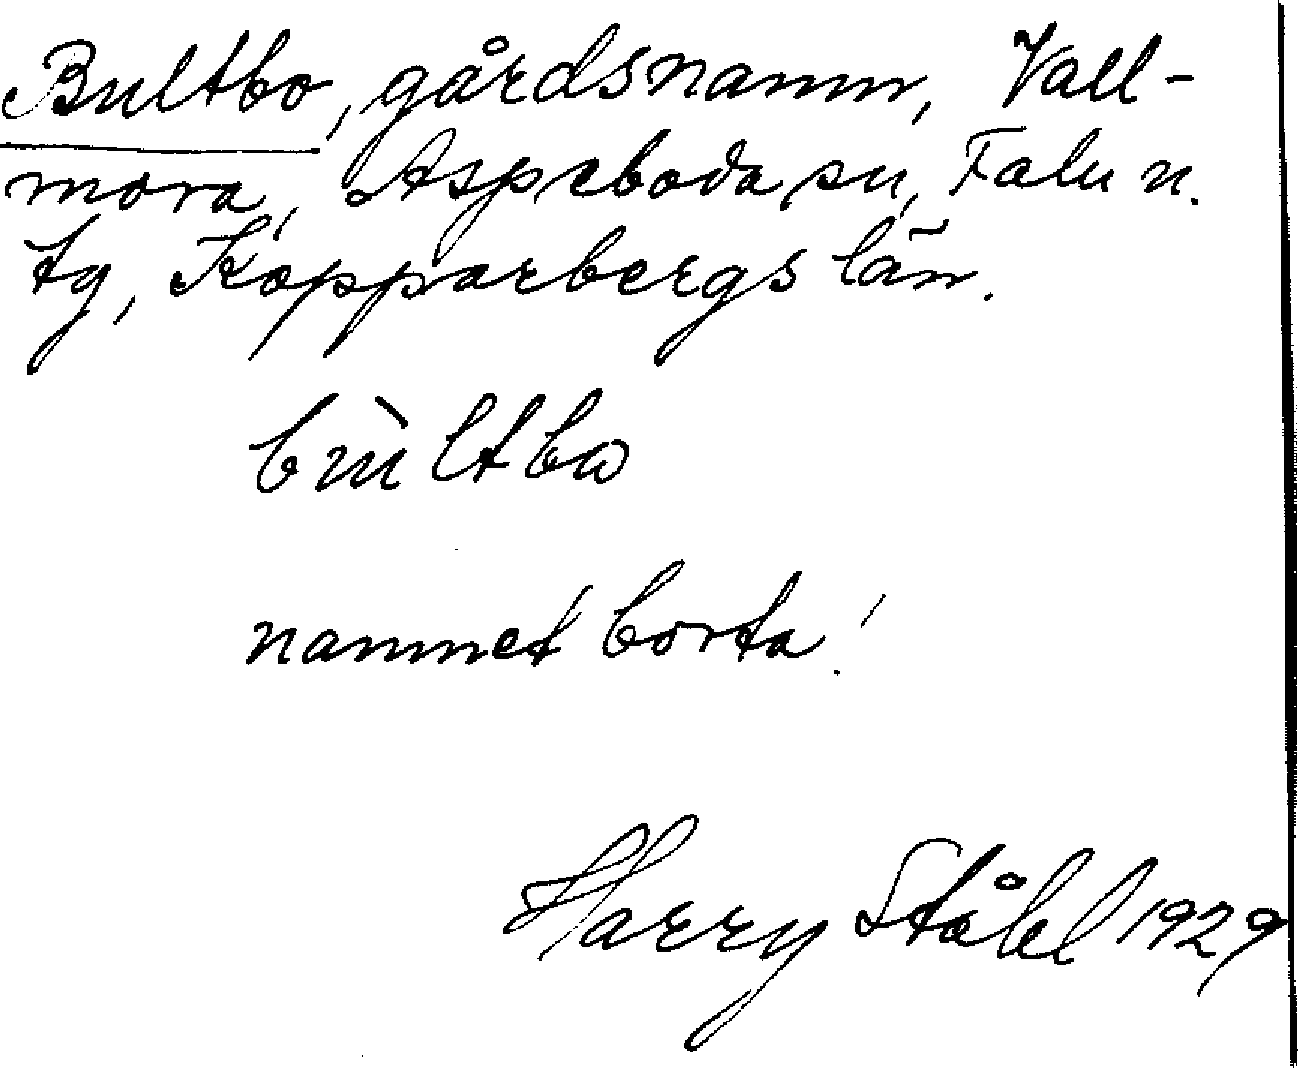 Bultbo, gårdsnamn, Vall-
mora, Aspeboda sn, Falu n.
tg, Kopparbergs län.
bùltbω
namnet borta!
Harry Ståhl 1929